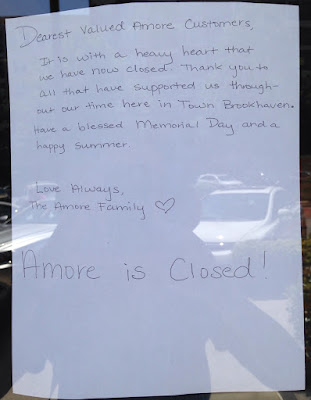 Dearest Valued Amore Customers,
It is with a heavy heart that
we have now closed. Thank you to
all that have supported us through-
out our time here in Town Brookhaven.
Have a blessed Memorial Day and a
happy summer.
Love Always,
The Amore Family ♡
Amore is Closed!